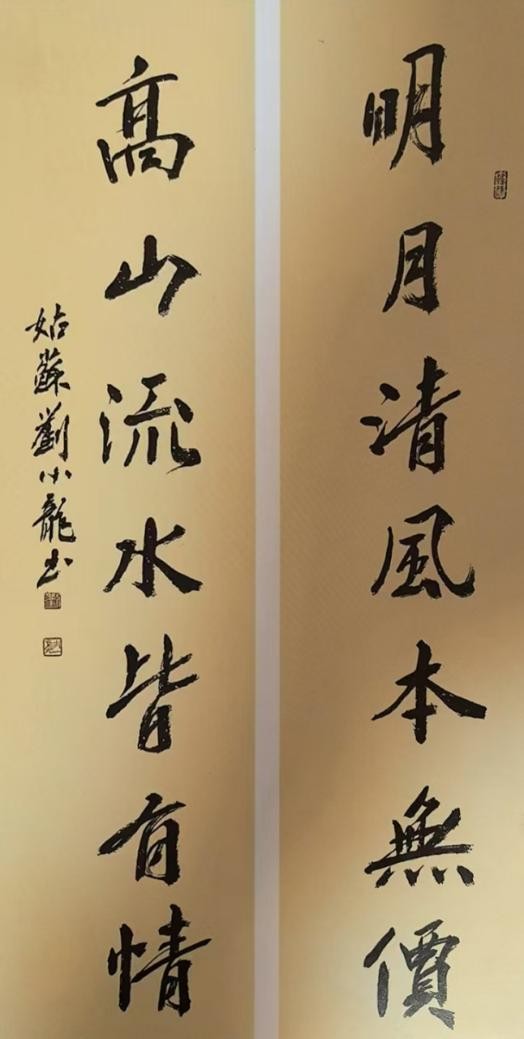 明月清風本無價
高山流水皆有情
姑蘇劉小龍書